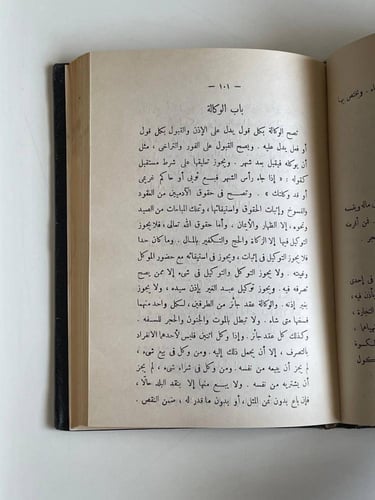 — ١٠١ —
باب الوكالة
تصح الوكالة بكل قول يدل على الإذن والقبول بكل قول
أو فعل يدل عليه . ويصح القبول على الفور والتراخى ، مثل
أن يوكله فيقبل بعد شهر . ويجوز تعليقها على شرط مستقبل
كقوله : « إذا جاء رأس الشهر فبع ثوبى أو حاكم غريمى
أو قد وكلتك » . وتصح فى حقوق الآدميين من العقود
والفسوخ وإثبات الحقوق واستيفائها ، وتملك المباحات من الصيد
ونحوه ، إلا الظهار والأيمان ، وأما حقوق الله تعالى ، فلا يجوز
التوكيل فيها إلا الزكاة والحج والتكفير بالمال . وما كان حدا
فلا يجوز التوكيل فى إثباته ، ويجوز فى استيفائه مع حضور الموكل
وغيبته . ولا يجوز التوكل والتوكيل فى شىء إلا ممن يصح
تصرفه فيه . ويجوز توكيل عبد الغير بإذن سيده ، ولا يجوز
بغير إذنه . والوكالة عقد جائز من الطرفين ، لكل واحد منهما
فسخها متى شاء . ولا تبطل بالموت والجنون والحجر للسفه .
وكذلك كل عقد جائز . وإذا وكل اثنين فليس لأحدهما الانفراد
بالتصرف ، إلا أن يجعل ذلك إليه . ومن وكل فى بيع شىء ،
لم يجز أن يبيعه من نفسه . ومن وكل فى شراء شىء ، لم يجز أن
يشتريه من نفسه . ولا يبيع منها إلا بنقد البلد حالا ،
فإن باع بدون ثمن المثل ، أو بدون ما قدر له ، ضمن النقص .
ويختص بها
ماله وبنفسه
فى إحدى
التجارة ،